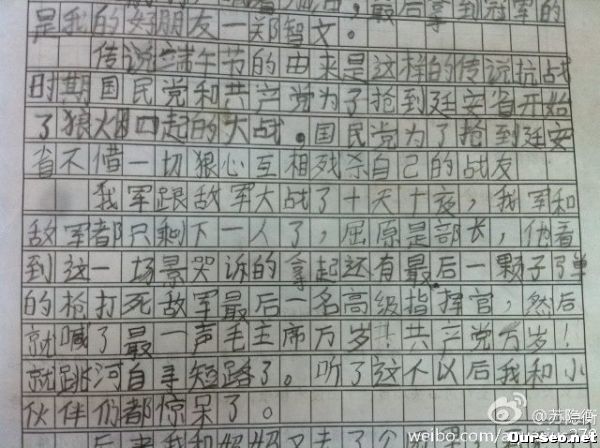 最后拿到冠军的
是我的好朋友一郑智文。
传说端午节的由来是这样的传说抗战
时期国民党和共产党为了抢到廷安省开始
了狼火四起的大战。国民党为了抢到廷安
省不惜一切狠心互相残杀自己的战友
我军跟敌军大战了十天十夜，我军和
敌军都只剩下一人了，屈原是部长，他看
到这一场景哭诉的拿起还有最后一颗子弹
的枪打死敌军最后一名高级指挥官，然后
就喊了最一声毛主席万岁！共产党万岁！
就跳河自寻短路了。听了这个以后我和小
伙伴们都惊呆了。
后来我和妈妈又去了
@苏隐衡
weibo.com/
Ourseo.net